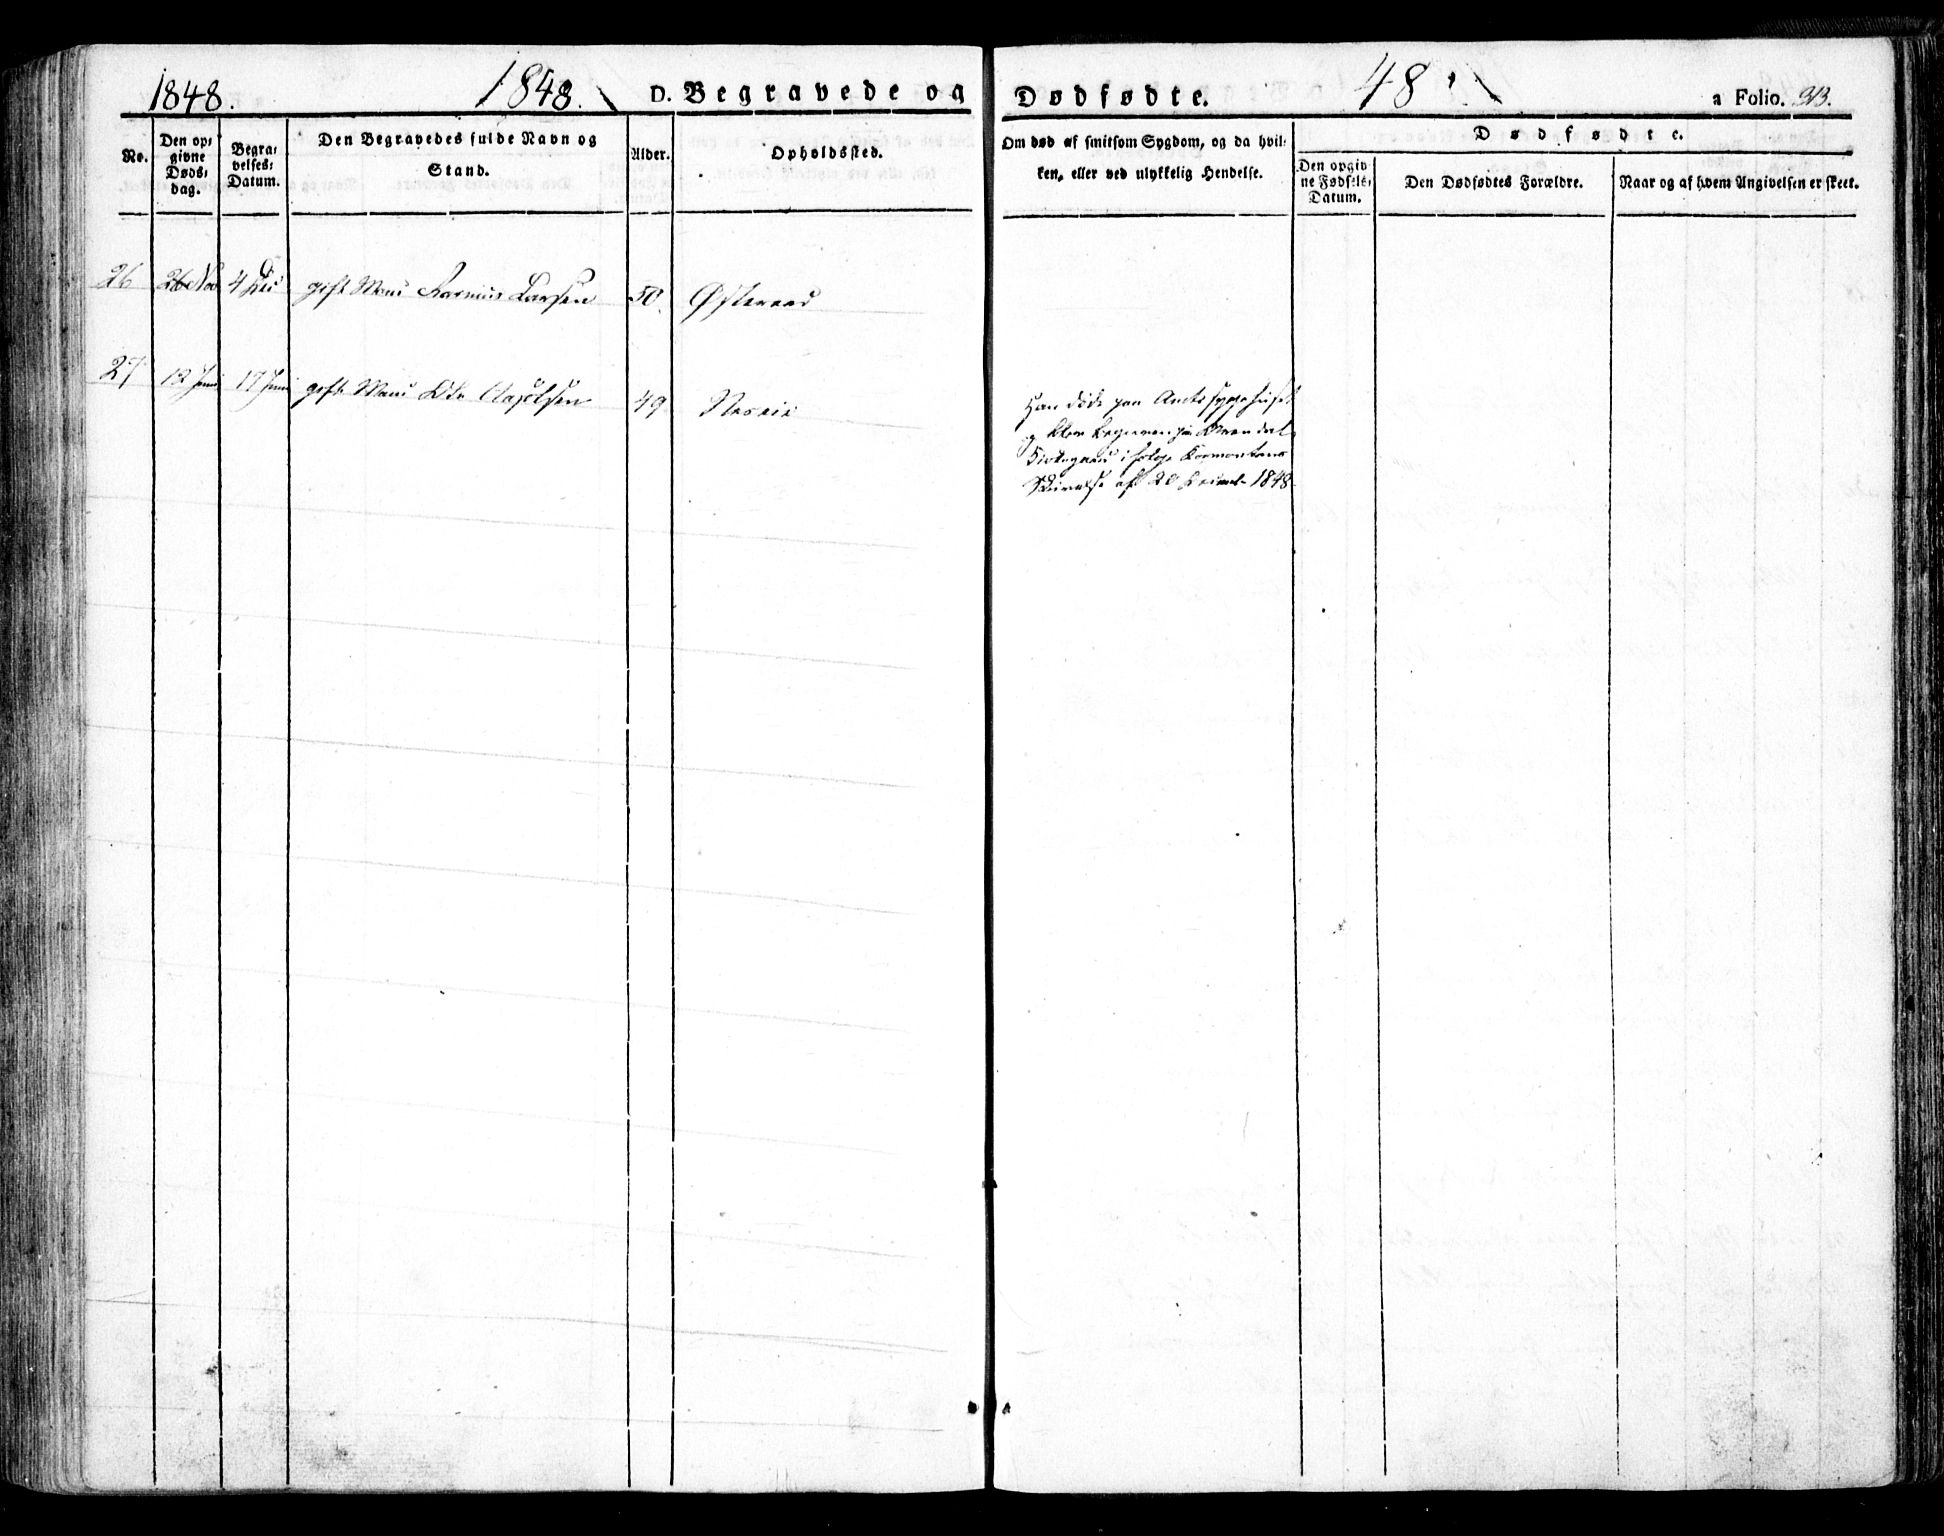 1848. 1848. D. Begravede og Dødfødte. 48 a Folio. 323.
No.
Den op-
givne
Døds-
dag.
Begra-
velses-
Datum.
Den Begravedes fulde Navn og
Stand.
Alder.
Opholdssted.
Om død af smitsom Sygdom, og da hvil-
ken, eller ved ulykkelig Hendelse.
Dødfødte.
Den opgiv-
ne Fødsels-
Datum.
Den Dødfødtes Forældre.
Naar og af hvem Angivelsen er skeet.
26 26 Nov 4 Dec gift Mand Rasmus Larsen 50.
27 12 Juni 17 Juni gift Mand Ole 49
Han døde paa Amtssygehuset
og blev begraven paa Arendals
Kirkegaard ifølge
af 20 1848